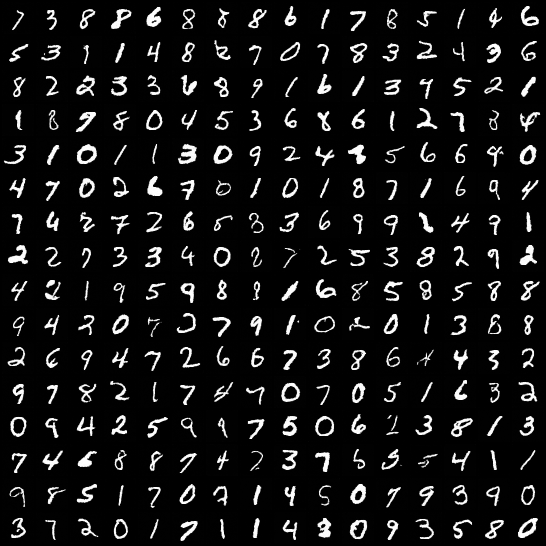 7 3 8 8 6 8 8 8 6 1 7 8 5 1 4 6
5 3 9 1 4 8 2 7 0 7 8 3 2 4 3 6
8 2 2 3 3 6 8 9 1 6 1 3 9 5 2 1
1 8 9 8 0 4 5 3 6 8 6 1 2 7 8 4
3 1 0 1 1 3 0 9 2 4 8 5 6 6 9 0
4 7 0 2 6 7 0 1 0 1 8 7 1 6 9 4
7 4 2 7 2 6 5 3 3 6 9 9 1 4 9 1
2 2 7 3 3 4 0 8 7 2 5 3 8 2 9 2
4 2 1 9 5 9 8 8 1 6 8 5 8 5 8 8
9 4 2 0 7 2 7 9 1 0 2 0 1 3 8 8
2 6 9 4 7 2 6 6 7 3 8 6 4 4 3 2
9 7 8 2 1 7 4 7 0 7 0 5 1 6 3 2
0 9 4 2 5 9 9 7 5 0 6 2 3 8 1 3
7 4 6 8 8 7 4 2 3 7 6 5 5 4 1 1
9 8 5 1 7 0 2 1 4 5 0 7 9 3 9 0
3 7 2 0 1 7 1 1 4 3 0 9 3 5 8 0